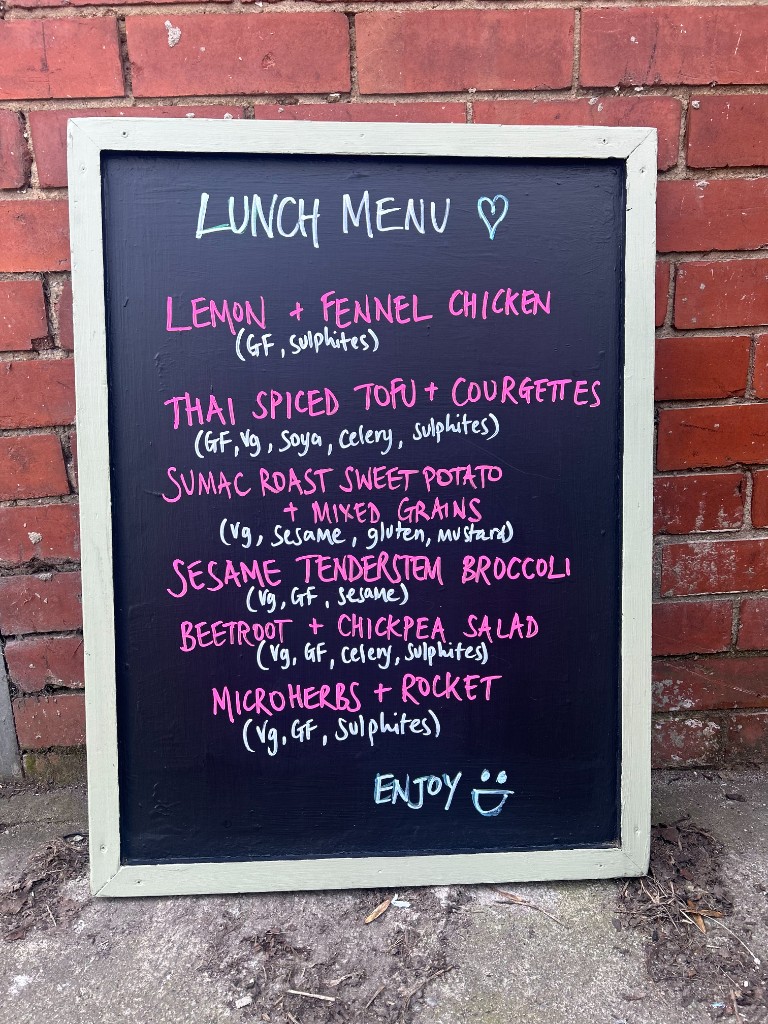 LUNCH MENU ♡
LEMON + FENNEL CHICKEN
(GF, Sulphites)
THAI SPICED TOFU + COURGETTES
(GF, Vg, Soya, Celery, Sulphites)
SUMAC ROAST SWEET POTATO
+ MIXED GRAINS
(Vg, Sesame, gluten, mustard)
SESAME TENDERSTEM BROCCOLI
(Vg, GF, Sesame)
BEETROOT + CHICKPEA SALAD
(Vg, GF, Celery, Sulphites)
MICROHERBS + ROCKET
(Vg, GF, Sulphites)
ENJOY